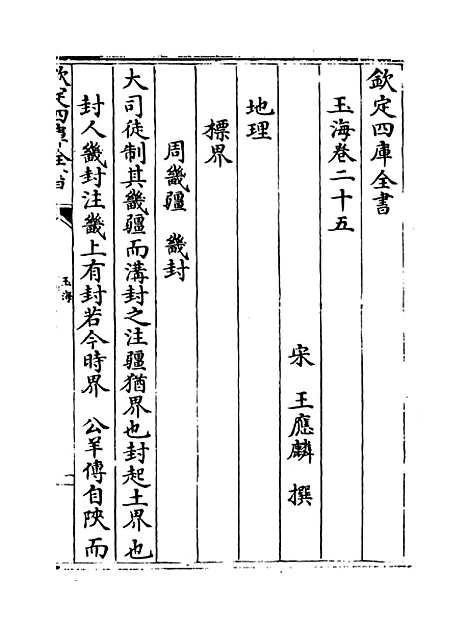 欽定四庫全書
玉海卷二十五
宋 王應麟 撰
地理
標界
周畿疆 畿封
大司徒制其畿疆而溝封之注疆猶界也封起土界也
封人畿封注畿上有封若今時界 公羊傳自陜而
欽定四庫全書
玉海
一